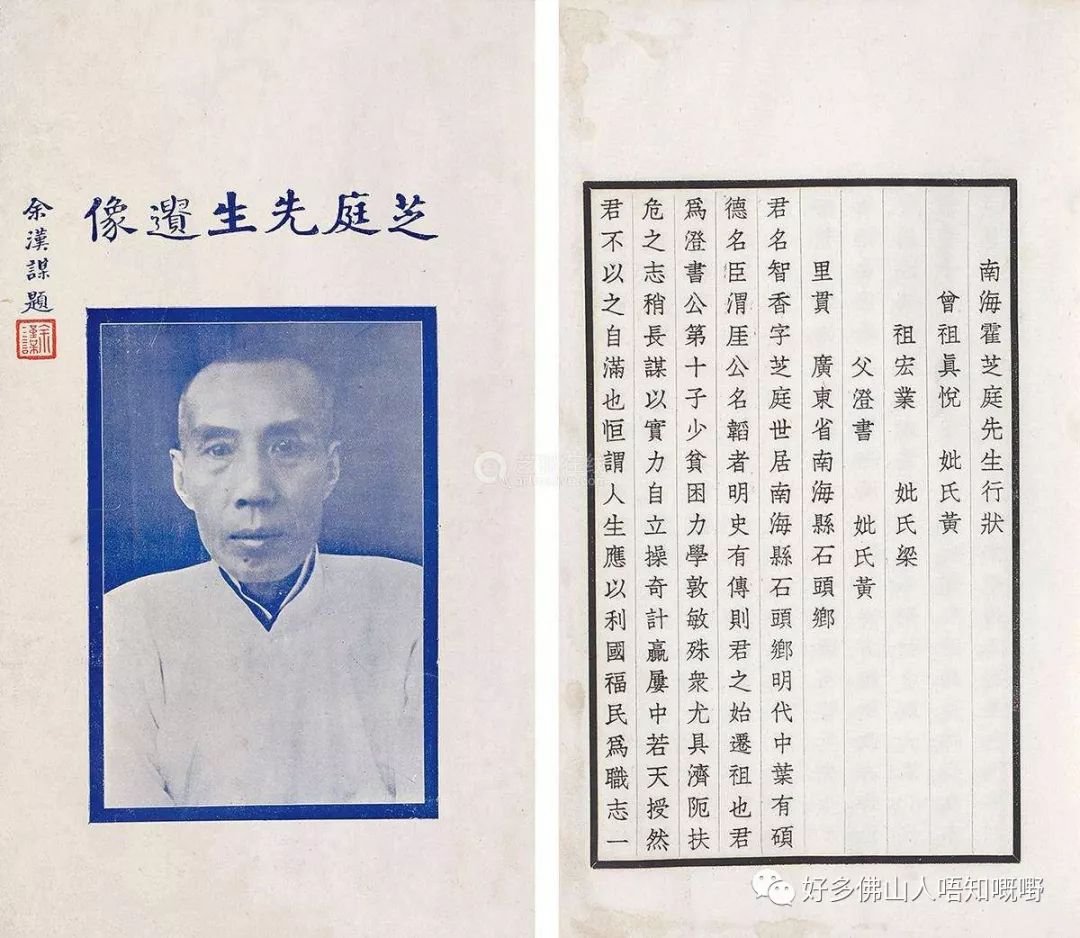 芝庭先生遺像
余漢謀題
南海霍芝庭先生行狀
曾祖眞悅　妣氏黃
祖宏業　妣氏梁
父澄書　妣氏黃
里貫　廣東省南海縣石頭鄉
君名智香字芝庭世居南海縣石頭鄉明代中葉有碩
德名臣渭厓公名韜者明史有傳則君之始遷祖也君
爲澄書公第十子少貧困力學敦敏殊衆尤具濟阨扶
危之志稍長謀以實力自立操奇計贏屢中若天授然
君不以之自滿也恒謂人生應以利國福民爲職志一
好多佛山人唔知嘅嘢